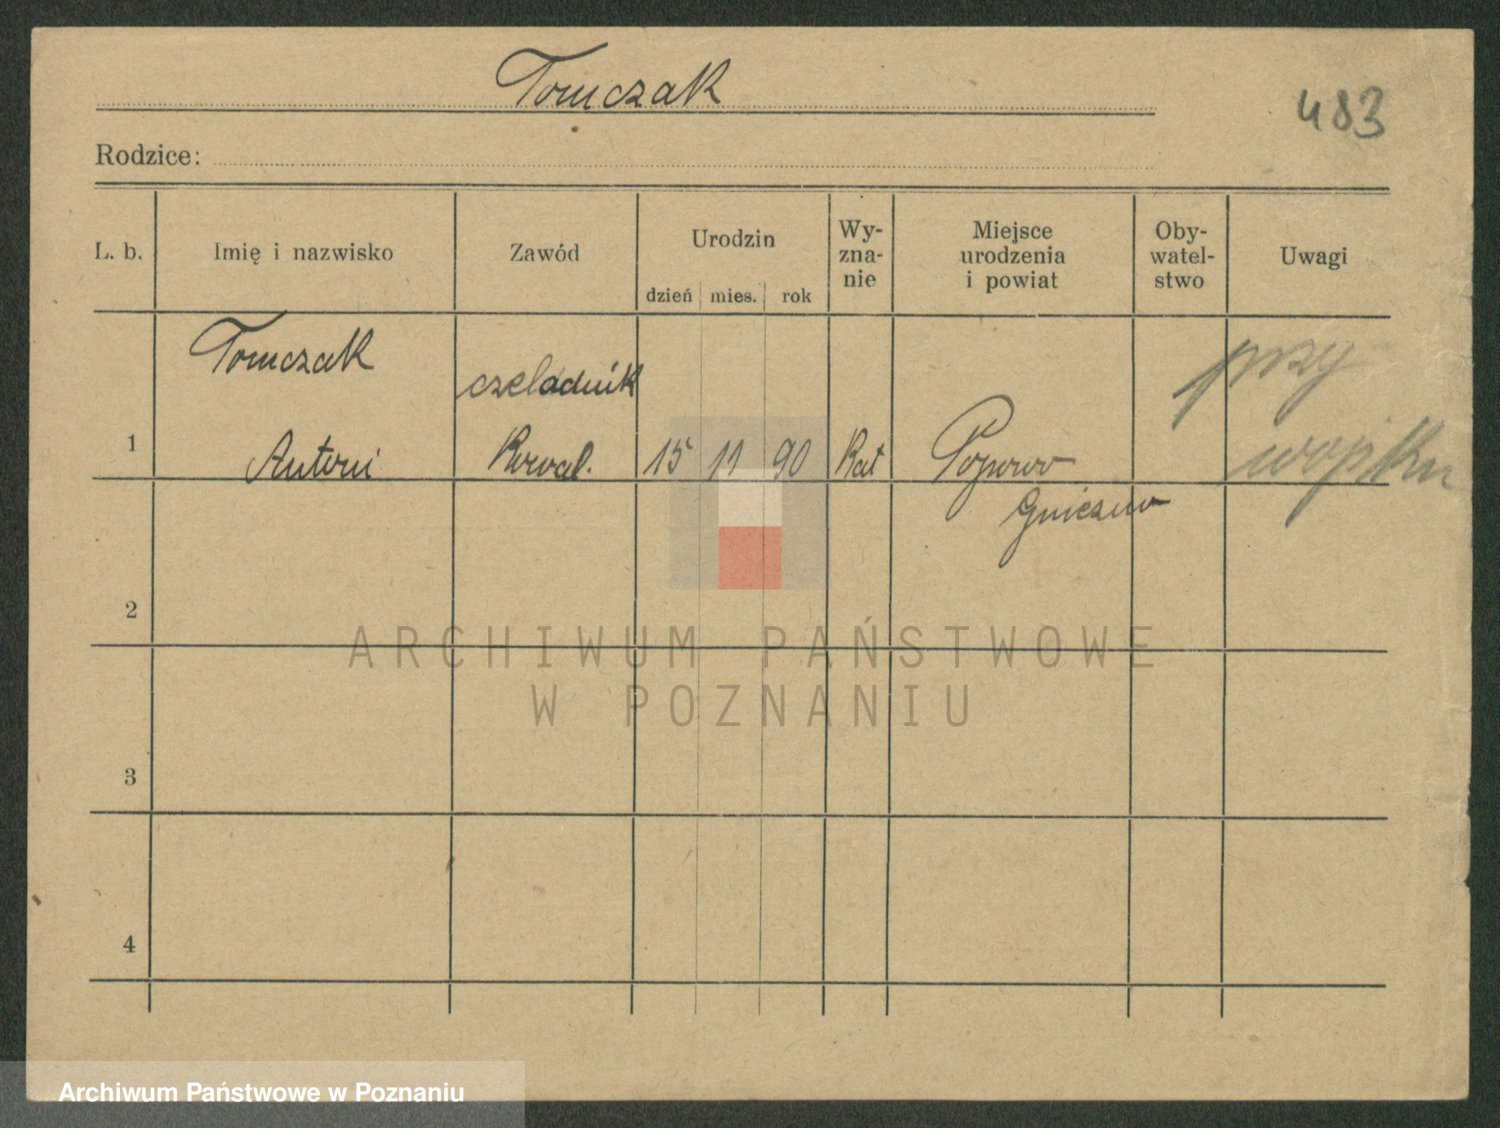 Tomczak
483
Rodzice:
L. b.
Imię i nazwisko
Zawód
Urodzin
dzień mies. rok
Wy-
zna-
nie
Miejsce
urodzenia
i powiat
Oby-
watel-
stwo
Uwagi
Tomczak
czeladnik
przy
1
Antoni
Kowal.
15 11 90
Kat
Popowo
wojsku
Gniezno
2
ARCHIWUM PAŃSTWOWE
W POZNANIU
3
4
Archiwum Państwowe w Poznaniu